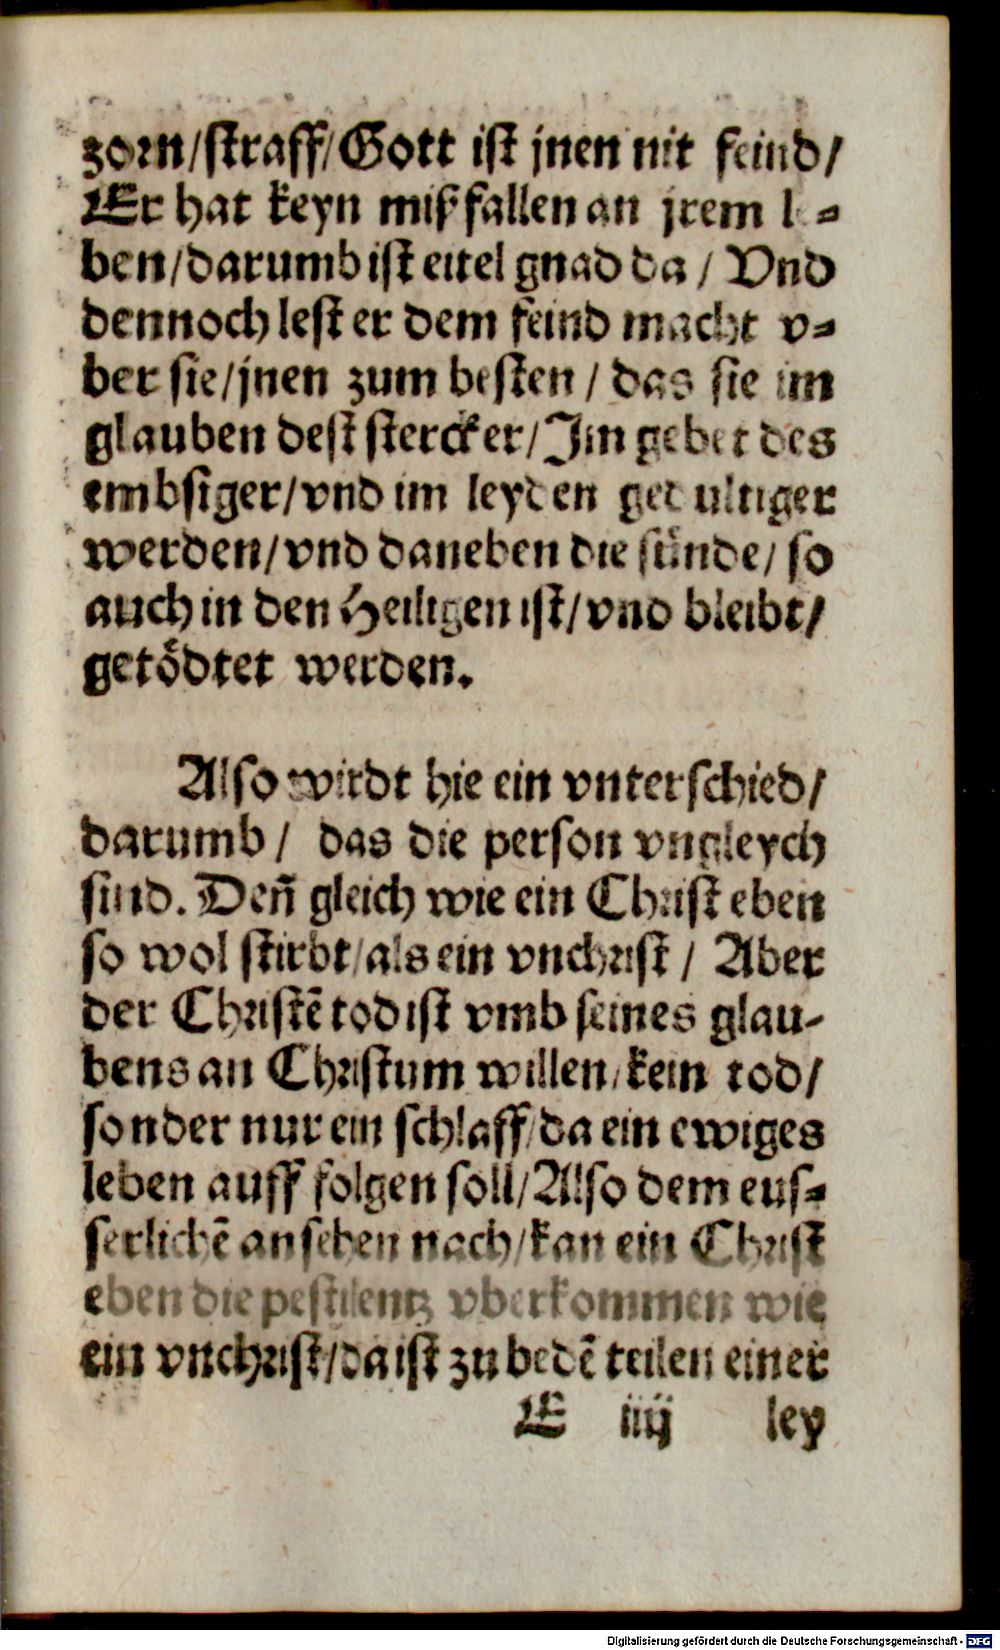 zorn/straff/Gott ist jnen nit feind/
Er hat keyn mißfallen an jrem le=
ben/darumb ist eitel gnad da/ Vnd
dennoch lest er dem feind macht v=
ber sie/jnen zum besten/ das sie im
glauben dest stercker/Im gebet des
embsiger/vnd im leyden gedultiger
werden/vnd daneben die sünde/ so
auch in den Heiligen ist/vnd bleibt/
getödtet werden.
Also wirdt hie ein vnterschied/
darumb/ das die person vngleych
sind. Deñ gleich wie ein Christ eben
so wol stirbt/als ein vnchrist/ Aber
der Christē tod ist vmb seines glau-
bens an Christum willen/kein tod/
sonder nur ein schlaff/da ein ewiges
leben auff folgen soll/Also dem eus=
serlichē ansehen nach/kan ein Christ
eben die pestilentz vberkommen wie
ein vnchrist/da ist zu bedē teilen einer
E iiij ley
Digitalisierung gefördert durch die Deutsche Forschungsgemeinschaft - DFG